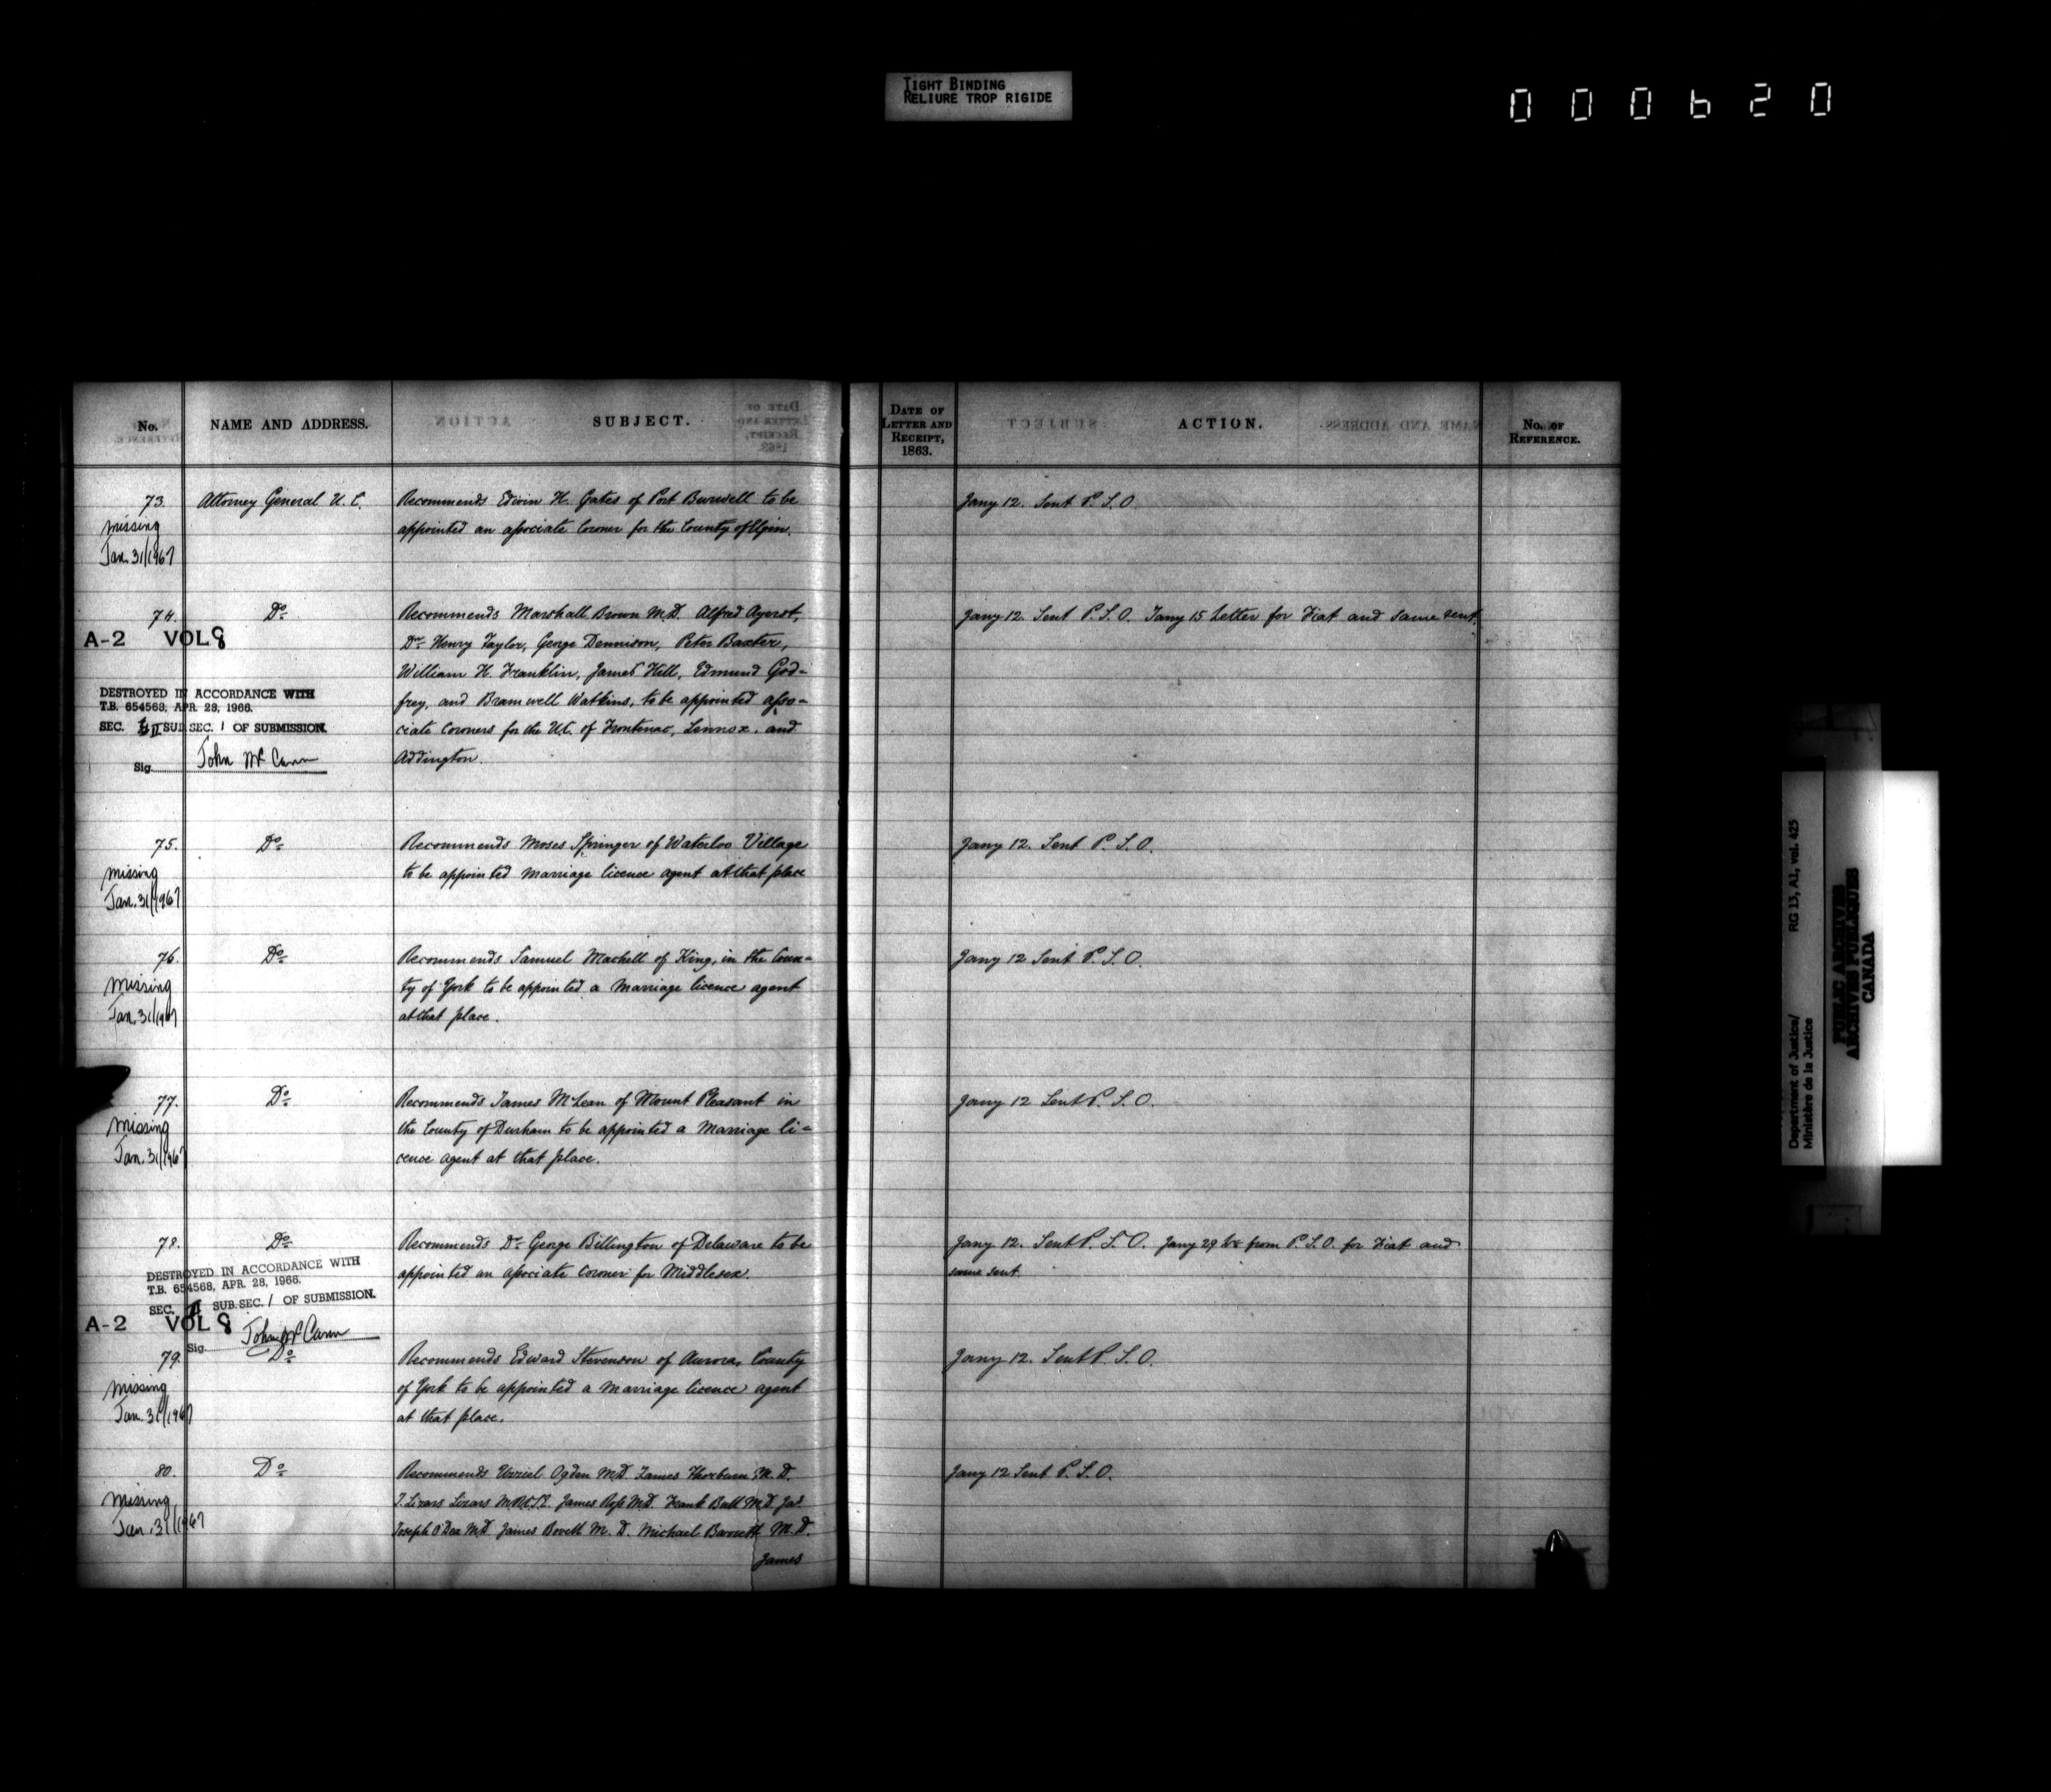 TIGHT BINDING
RELIURE TROP RIGIDE
000620
No.
NAME AND ADDRESS.
SUBJECT.
DATE OF LETTER AND RECEIPT, 1863.
ACTION.
No. OF REFERENCE.
73. Attorney General U. C. Recommends Edwin H. Gates of Port Burwell to be Jany 12. Sent P. S. O.
missing appointed an associate Coroner for the County of Elgin.
Jan. 31/1967
74. Do Recommends Marshall Brown M.D. Alfred Ayerst, Jany 12. Sent P. S. O. Jany 15 Letter for Fiat and same sent.
A-2 VOL 8 Henry Taylor, George Dennison, Peter Baxter,
William H. Franklin, James Hill, Edmund God-
DESTROYED IN ACCORDANCE WITH frey, and Bramwell Watkins, to be appointed asso-
T.B. 654568, APR. 28, 1966.
SEC. II SUB.SEC. 1 OF SUBMISSION. ciate Coroners for the U.C. of Frontenac, Lennox, and
Sig. John McCann Addington.
75. Do Recommends Moses Springer of Waterloo Village Jany 12. Sent P. S. O.
missing to be appointed marriage licence agent at that place
Jan. 31/1967
76. Do Recommends Samuel Machell of King, in the Coun- Jany 12 Sent P. S. O.
missing ty of York to be appointed a marriage licence agent
Jan. 31/1967 at that place.
77. Do Recommends James McLean of Mount Pleasant in Jany 12 Sent P. S. O.
missing the County of Durham to be appointed a Marriage li-
Jan. 31/1967 cence agent at that place.
78. Do Recommends Dr George Billington of Delaware to be Jany 12. Sent P. S. O. Jany 29 from P. S. O. for Fiat and
appointed an associate Coroner for Middlesex. same sent.
DESTROYED IN ACCORDANCE WITH
T.B. 654568, APR. 28, 1966.
SEC. II SUB.SEC. 1 OF SUBMISSION.
A-2 VOL 8
Sig. John McCann
79. Do Recommends Edward Stevenson of Aurora, County Jany 12. Sent P. S. O.
missing of York to be appointed a marriage licence agent
Jan. 31/1967 at that place.
80. Do Recommends Uzziel Ogden M.D. James Thorburn M.D. Jany 12 Sent P. S. O.
missing J. Lizars Lizars James Ross M.D. Frank Bull M.D. Jas
Jan. 31/1967 Joseph O'Dea M.D James Bovell M. D. Michael Barrett M.D.
James
Department of Justice/ RG 13, A1, vol. 425
Ministère de la Justice
PUBLIC ARCHIVES
ARCHIVES PUBLIQUES
CANADA